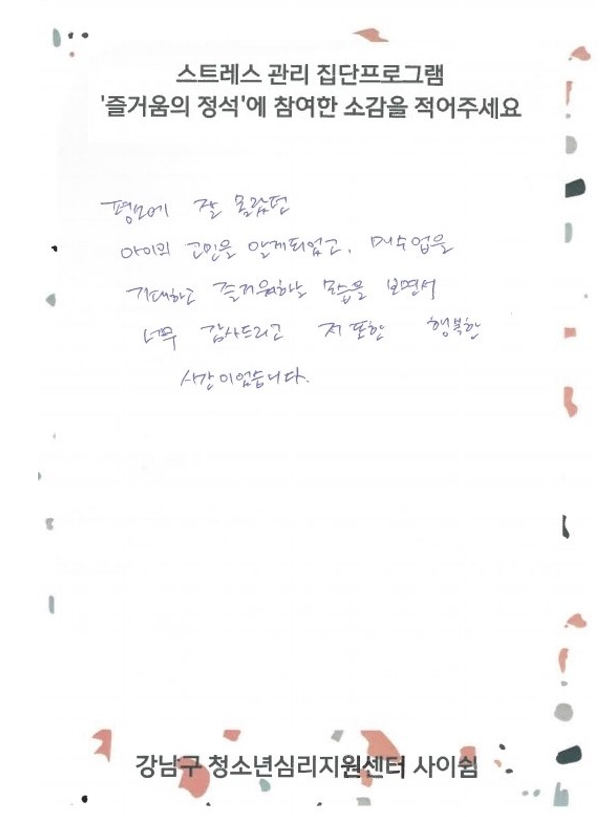 스트레스 관리 집단프로그램
'즐거움의 정석'에 참여한 소감을 적어주세요
평소에 잘 몰랐던
아이의 고민을 알게되었고, 매수업을
기대하고 즐거워하는 모습을 보면서
너무 감사드리고 저 또한 행복한
시간이었습니다.
강남구 청소년심리지원센터 사이쉼